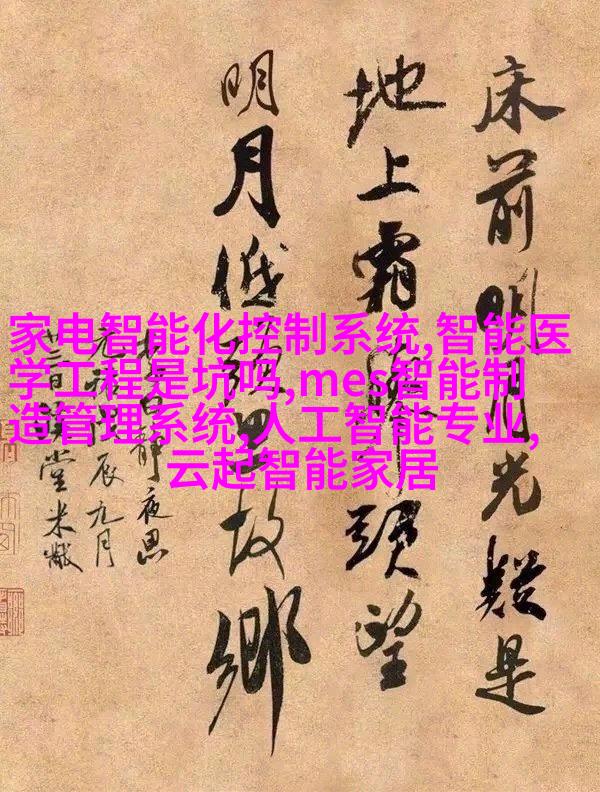 家电智能化控制系统,智能医
学工程是坑吗,mes智能制
造管理系统,人工智能专业,
云起智能家居
床前明月光疑是
地上霜舉頭望
明月低頭思故鄉
白靜夜思
元辰九月
廿三日溪堂米黻